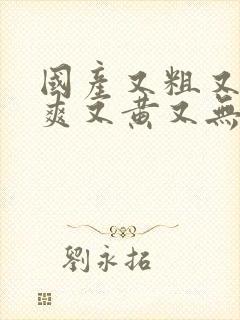 國產又粗又
爽又黄又無
劉永拓